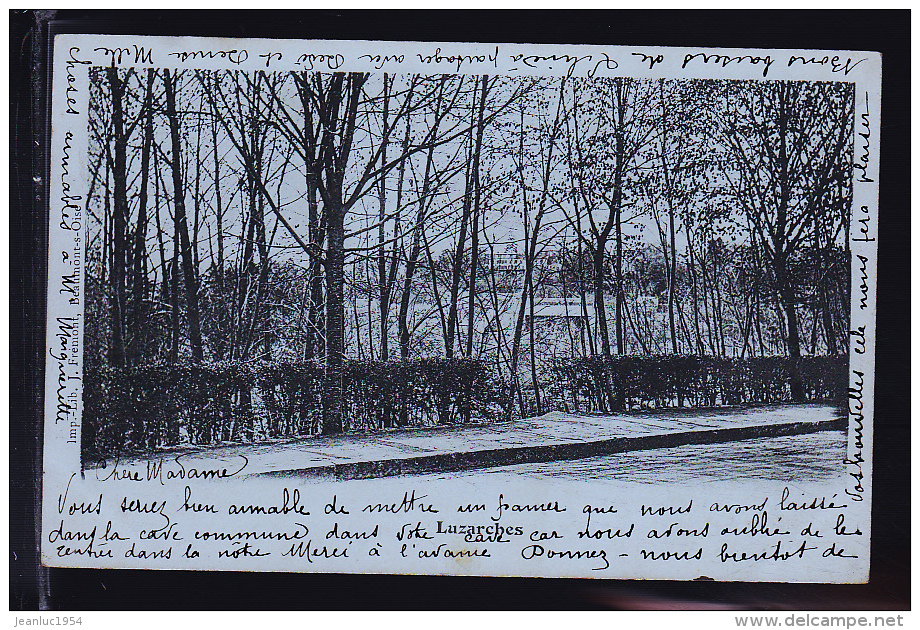 Chère Madame
Vous serez bien aimable de mettre un panier que nous avons laissé
dans la cave commune dans votre cave car nous avons oublié de le
rentrer dans la nôtre Merci à l'avance Donnez-nous bientôt de
vos nouvelles cela nous fera plaisir
Bons baisers de à partager avec et Denise Mille
choses aimables à M Marguerite
Luzarches
Imp.-Lib. J. Frémont, Beaumont-s-Oise
jeanluc1954
www.delcampe.net